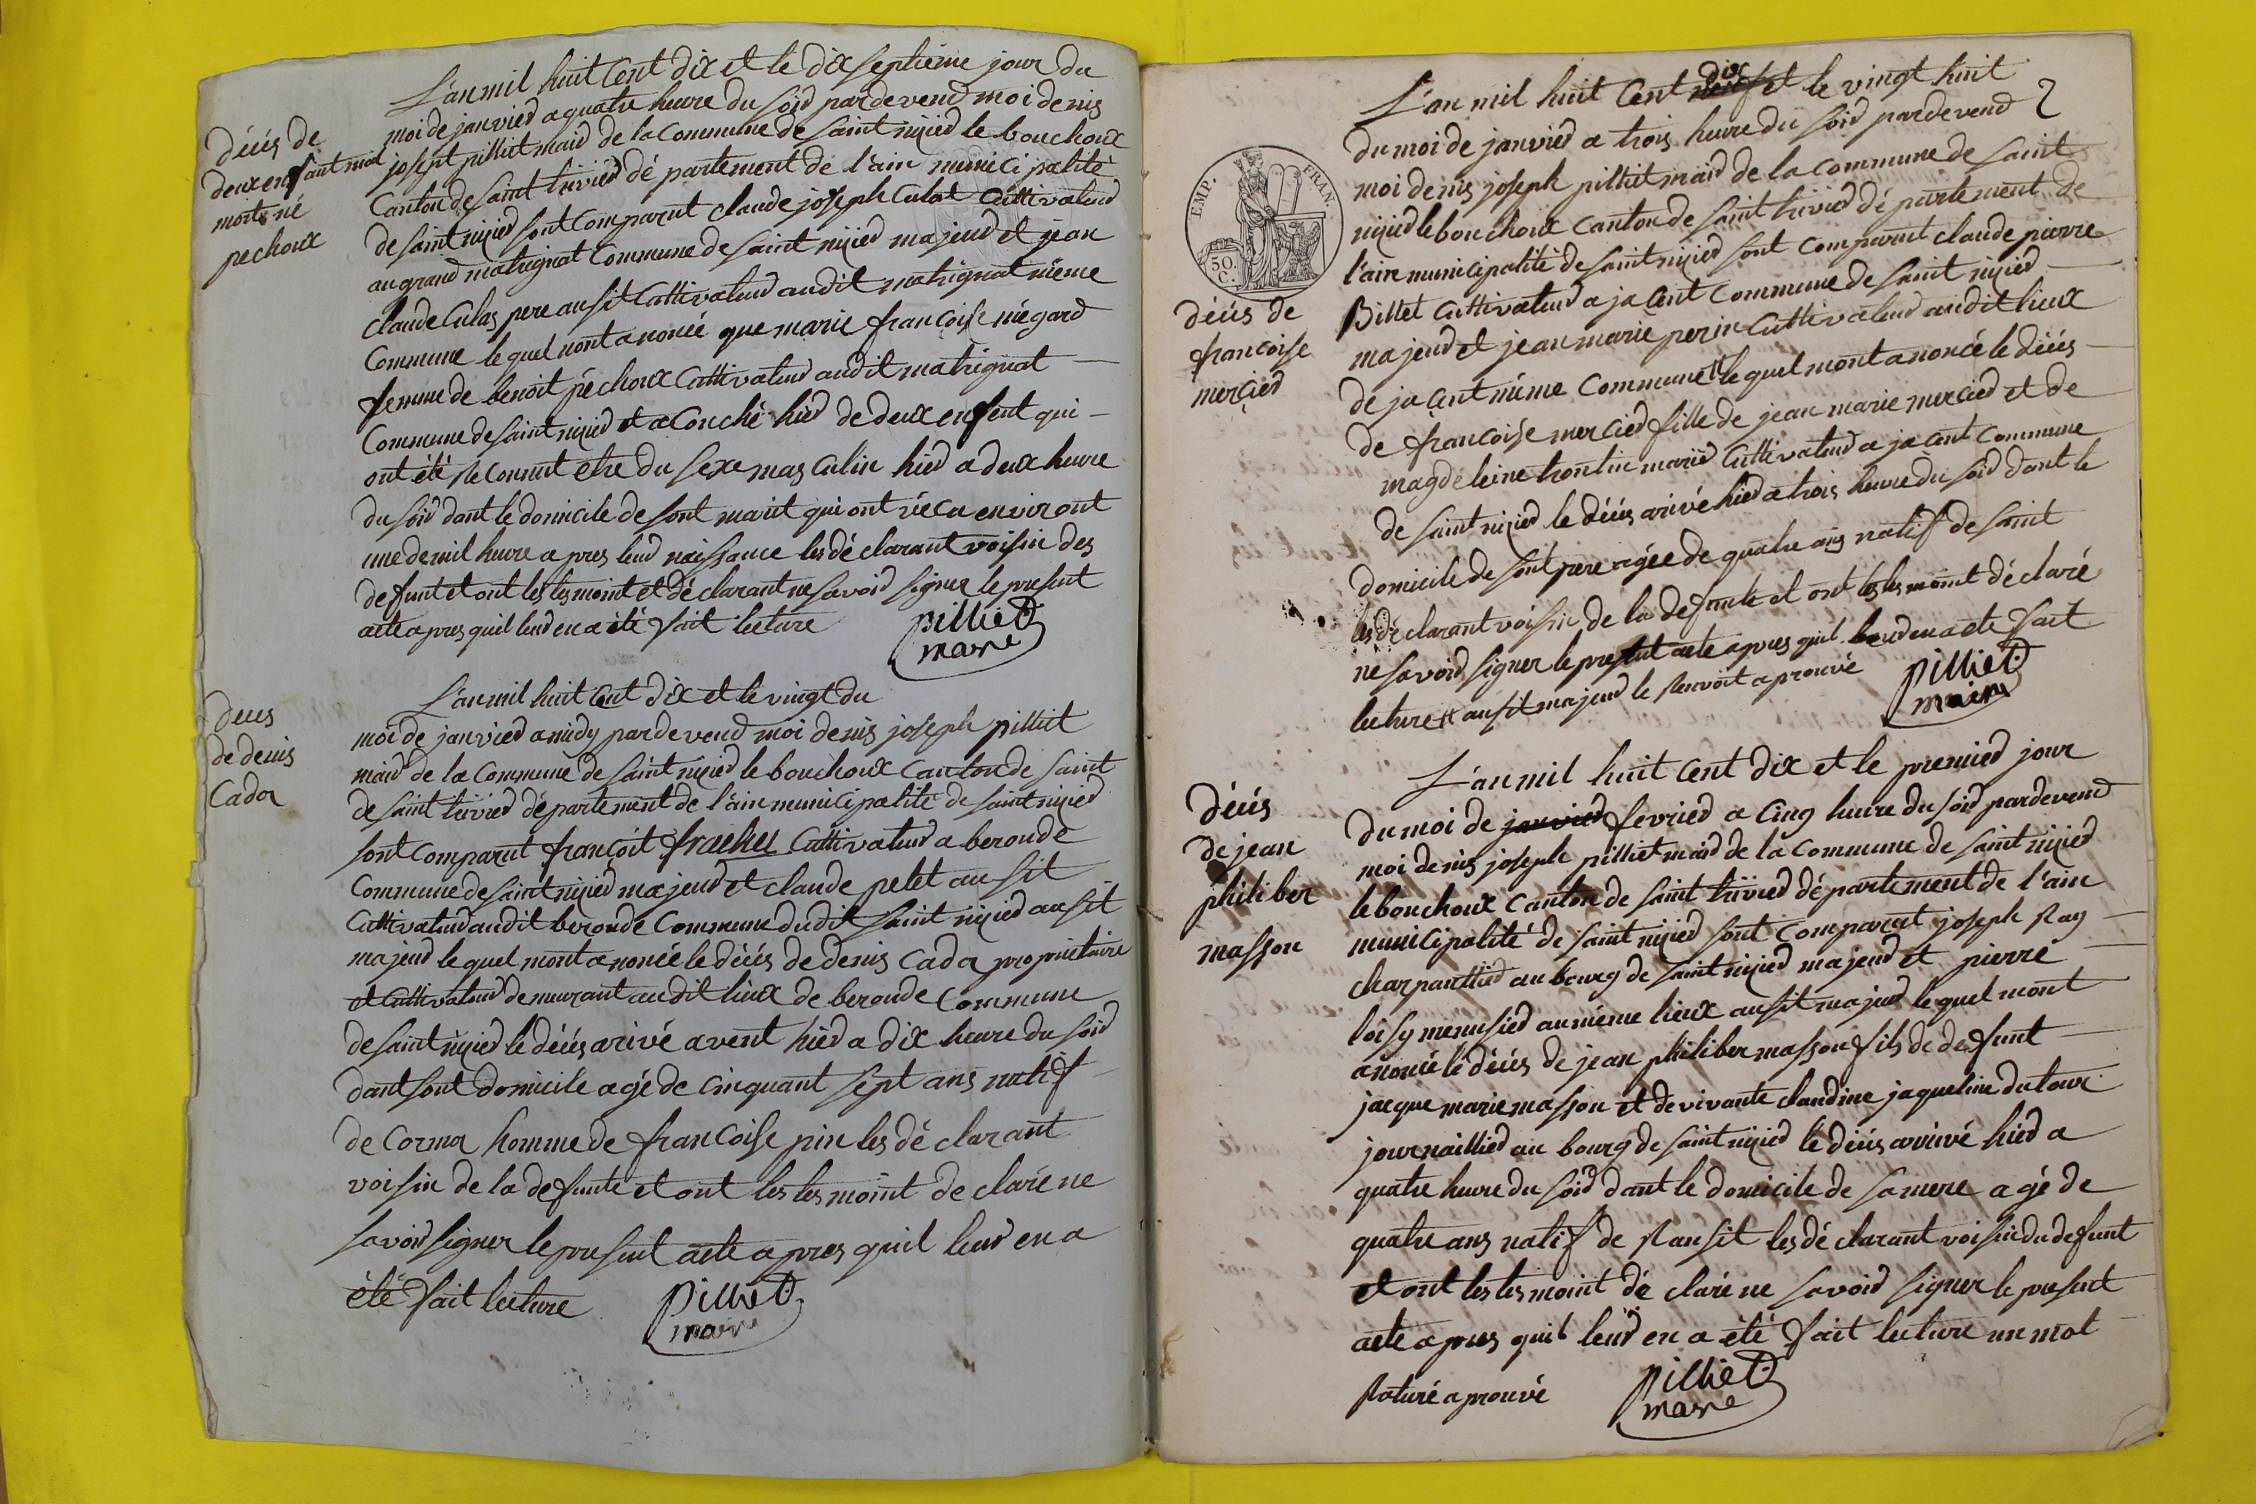 décés de
deux enfant mal
morts né
pechoux
L'an mil huit cent dix et le dix septieme jour du
moi de janvied a quatre heure du soid pardevend moi denis
josept pilliet maid de la commune de saint nizied le bouchoux
canton de saint trivied dé partement de l'ain municipalité
de saint nizied sont comparut claude joseph Culat Cuttivateud
au grand matrignat commune de saint nizied majeud et jean
claude Culas pere ausit Cuttivateud audit matrignat méme
commune le quel mont anoncé que marie francoise niégard
femme de benoit péchoux Cuttivateud audit matrignat
commune de saint nizied et a Couché hied de deux enfent qui
ont été reconnut etre du sexe mas culin hied a deux heure
du soid dant le domicile de sont marit qui ont véca environt
une demil heure a pres leud naissance les dé clarant voisin des
defunt et ont les tesmoint et dé clarant ne savoid signer le present
acte a pres quil leud en a été fait lecture
pilliet
maire
deces
de denis
Cador
L'an mil huit cent dix et le vingt du
moi de janvied a midy pardevend moi denis joseph pilliet
maid de la commune de saint nizied le bouchoux canton de saint
de saint trivied département de l'ain municipalité de saint nizied
sont comparut françoit frachet Cuttivateud a beronde
commune de saint nizied majeud et claude pelet au sit
Cuttivateud audit beronde commune dudit saint nizied au sit
majeud le quel mont anoncé le décés de denis Cador proprietaire
et Cuttivateud demeurant audit lieux de beronde commune
de saint nizied le décés arivé avent hied a dix heure du soid
dant sont domicile agé de cinquant sept ans natif
de Cormoz homme de francoise pin les dé clarant
voisin de la defunte et ont les tesmoint de claré ne
savoid signer le present acte a pres quil leud en a
été fait lecture
pilliet
maire
EMP. FRAN.
50.
C.
décés de
francoise
mercied
L'an mil huit cent neuf dix et le vingt huit
du moi de janvied a trois heure du soid pardevend
moi denis joseph pilliet maid de la commune de saint
nizied le bouchoux canton de saint trivied dé partement de
l'ain municipalité de saint nizied sont comparut claude pierre
Billet Cuttivateud a ja cent commune de saint nizied
majeud et jean marie perin Cuttivateud audit lieux
de ja cent méme commune # le quel mont anoncé le décés
de francoise mercied fille de jean marie mercied et de
magdeleine trontin marié Cuttivateud a ja cent commune
de saint nizied le décés arivé hied a trois heure du soid dant le
domicile de sont pere agée de quatre ans natif de saint
les dé clarant voisin de la defunte et ont les tesmoint déclaré
ne savoid signer le present acte a pres quil leud en a été fait
lecture # ausit majeud le renvoit a prouvé
pilliet
maire
décés
de jean
philiber
masson
L'an mil huit cent dix et le premied jour
du moi de janvied fevried a cinq heure du soid pardevend
moi denis joseph pilliet maid de la commune de saint nizied
le bouchoux canton de saint trivied dé partement de l'ain
municipalité de saint nizied sont comparut joseph Ray
charpanttied au bourg de saint nizied majeud et pierre
loisy menusied au méme lieux ausit majeud le quel mont
anoncé le décés de jean philiber masson fils de defunt
jacque marie masson et de vivante claudine jaqueline dutour
journaillied au bourg de saint nizied le décés arivé hied a
quatre heure du soid dant le domicile de sa mere agé de
quatre ans natif de Ransit les dé clarant voisin du defunt
et ont les tesmoint dé claré ne savoid signer le present
acte a pres quil leud en a été fait lecture un mot
raturé a prouvé
pilliet
maire